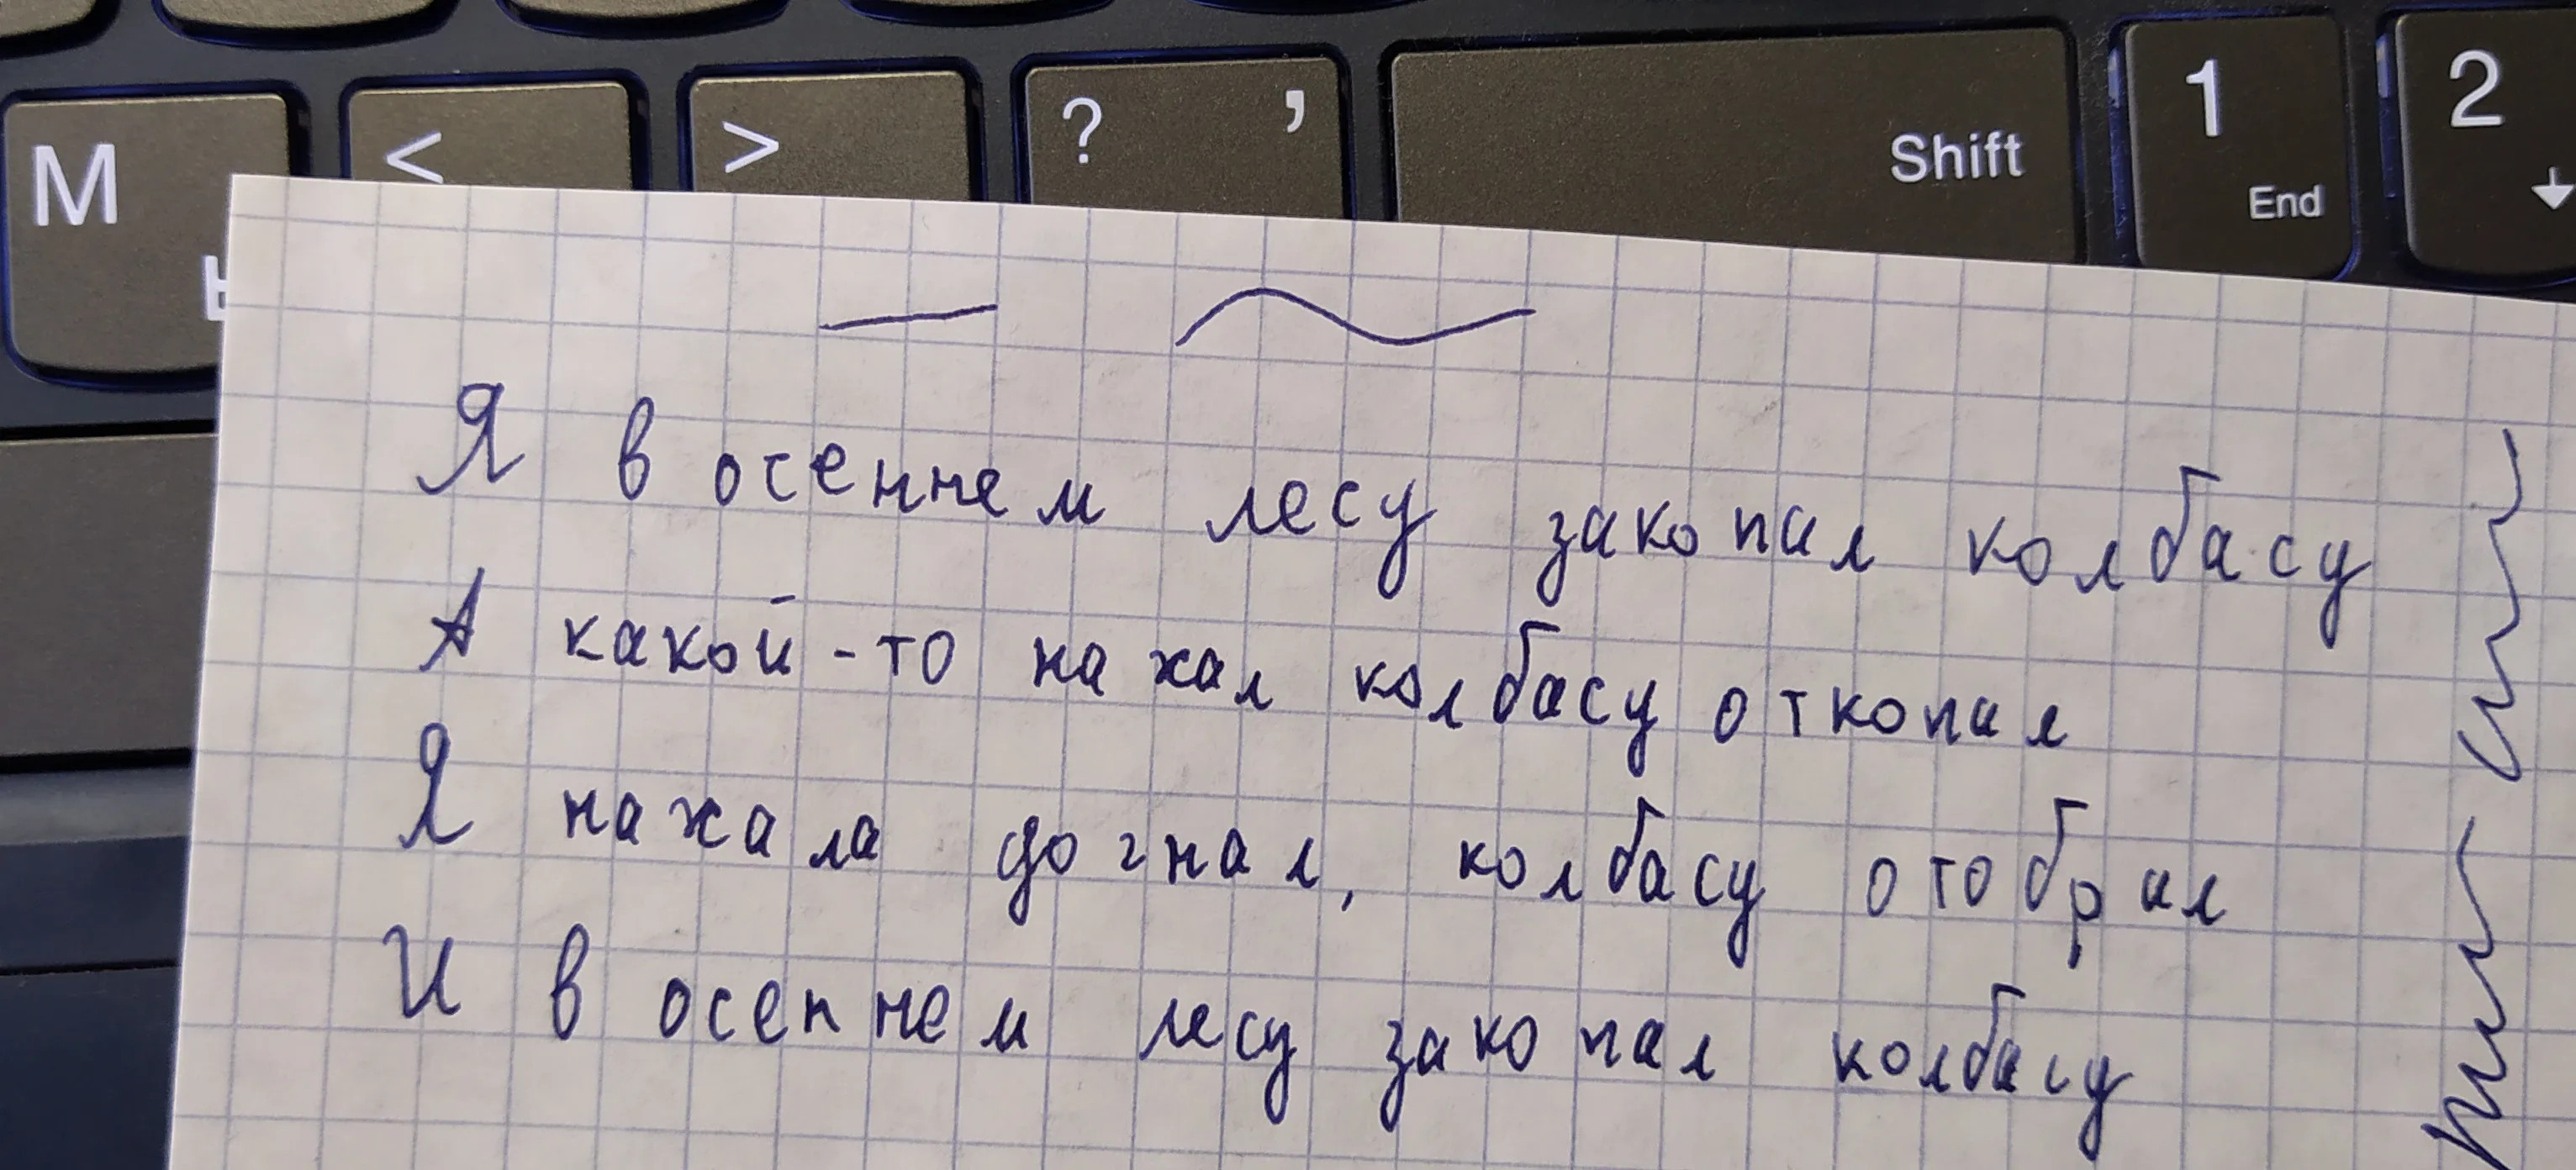 M < > ? , Shift 1 End 2
Я в осеннем лесу закопал колбасу
А какой-то нахал колбасу откопал
Я нахала догнал, колбасу отобрал
И в осеннем лесу закопал колбасу